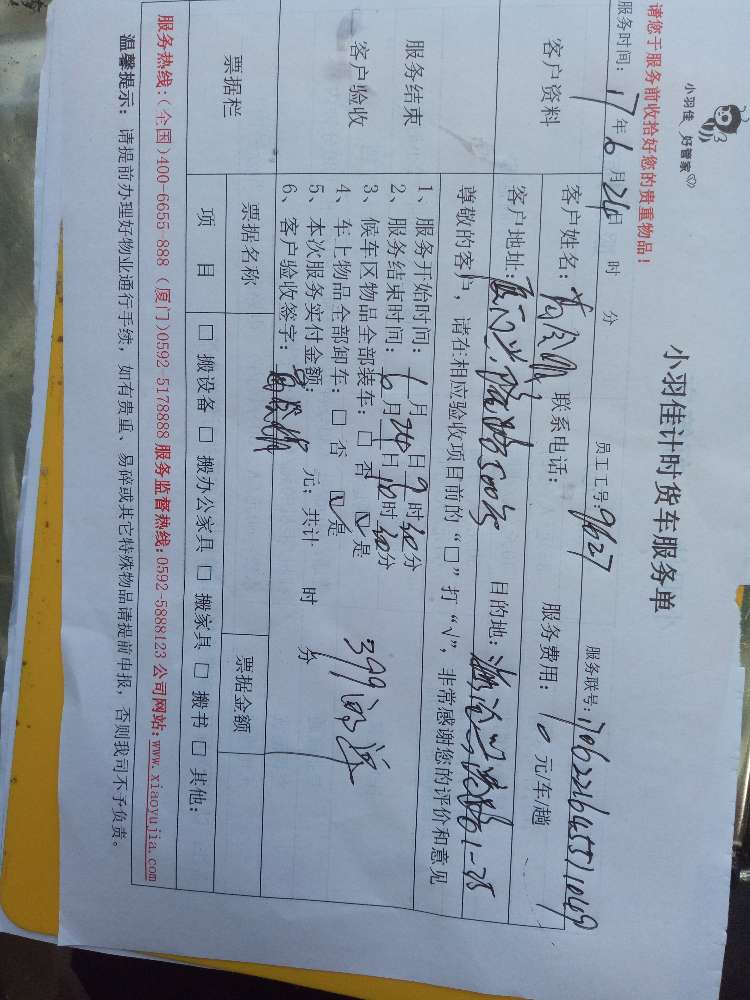 小羽佳 好管家
小羽佳计时货车服务单
请您于服务前收拾好您的贵重物品!
员工工号: 9627
服务联号:
服务时间: 17年6月24日 时 分
客户资料
客户姓名: 联系电话: 服务费用: 元/车/趟
客户地址: 目的地:
尊敬的客户,请在相应验收项目前的“□”打“√”,非常感谢您的评价和意见
服务结束
客户验收
1、服务开始时间: 月24日9时 分
2、服务结束时间: 6月24日10时 分
3、候车区物品全部装车: □ 否 ☑ 是
4、车上物品全部卸车: □ 否 ☑ 是
5、本次服务实付金额: 元; 共计 时 分
399
6、客户验收签字:
票据栏
票据名称
票据金额
项 目
□ 搬设备 □ 搬办公家具 □ 搬家具 □ 搬书 □ 其他:
服务热线:(全国)400-6655-888 (厦门)0592-5178888 服务监督热线:0592-5888123 公司网站:www.xiaoyujia.com
温馨提示: 请提前办理好物业通行手续,如有贵重、易碎或其它特殊物品请提前申报,否则我司不予负责。